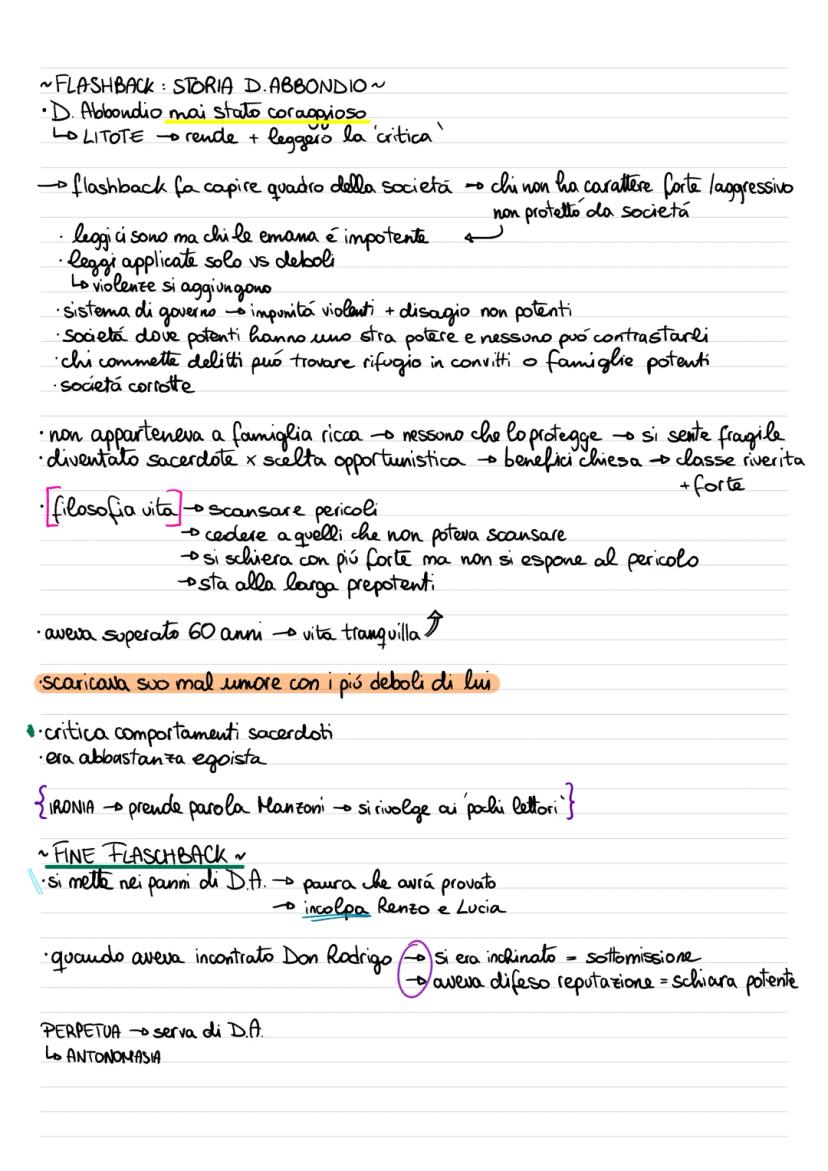 ~FLASHBACK: STORIA D.ABBONDIO~
·D. Abbondio mai stato coraggioso
↳ LITOTE → rende + leggero la 'critica'
→ flashback fa capire quadro della societá → chi non ha carattere forte/aggressivo
non protetto da societá
· leggi ci sono ma chi le emana é impotente ↵
· leggi applicate solo vs deboli
↳ violenze si aggiungono
·sistema di governo → impunitá violenti + disagio non potenti
·societá dove potenti hanno uno stra potere e nessuno puó contrastarli
·chi commette delitti puó trovare rifugio in convitti o famiglie potenti
·societá corrotte
·non apparteneva a famiglia ricca → nessuno che lo protegge → si sente fragile
·diventato sacerdote x scelta opportunistica → benefici chiesa → classe riverita
+ forte
·[filosofia vita] → scansare pericoli
→ cedere a quelli che non poteva scansare
→ si schiera con piú forte ma non si espone al pericolo
→ sta alla larga prepotenti
·aveva superato 60 anni → vita tranquilla ⇗
·scaricava suo mal umore con i piú deboli di lui
·critica comportamenti sacerdoti
·era abbastanza egoista
{IRONIA → prende parola Manzoni → si rivolge ai 'pochi lettori'}
~FINE FLASCHBACK~
·si mette nei panni di D.A. → paura che avrá provato
→ incolpa Renzo e Lucia
·quando aveva incontrato Don Rodrigo → si era inchinato = sottomissione
→ aveva difeso reputazione = schiara potente
PERPETUA → serva di D.A.
↳ ANTONOMASIA